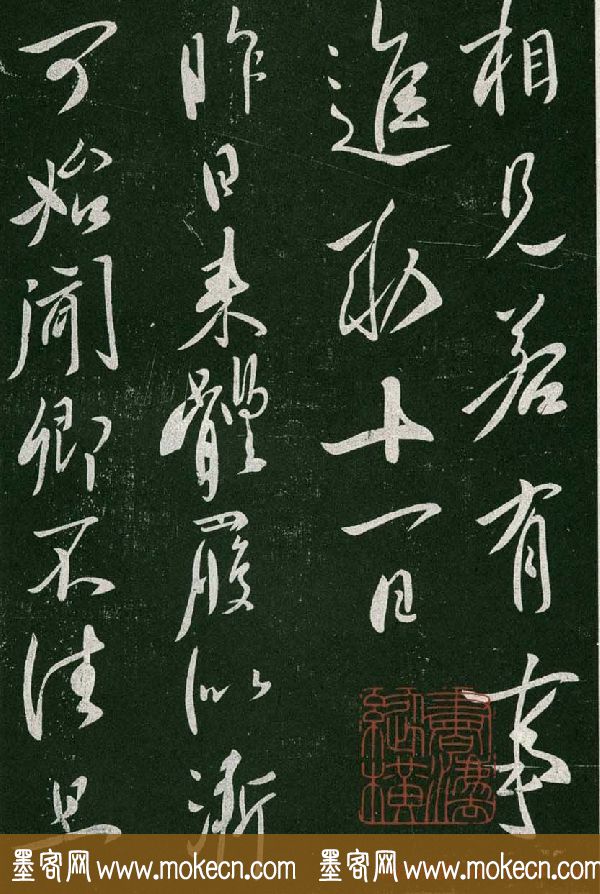 相見若有事
進勅十一日
昨日来體履似漸
可始聞卿不佳且
書灋
縱橫
墨客网 www.mokecn.com 墨客网 www.mokecn.com